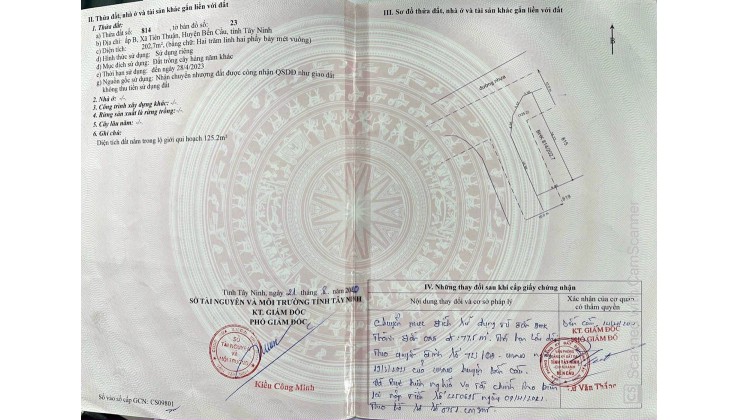 II. Thửa đất, nhà ở và tài sản khác gắn liền với đất
1. Thửa đất:
a) Thửa đất số: 814 , tờ bản đồ số: 23
b) Địa chỉ: ấp B, Xã Tiên Thuận, Huyện Bến Cầu, tỉnh Tây Ninh
c) Diện tích: 202.7m², (bằng chữ: Hai trăm linh hai phẩy bảy mét vuông)
d) Hình thức sử dụng: Sử dụng riêng
đ) Mục đích sử dụng: Đất trồng cây hàng năm khác
e) Thời hạn sử dụng: đến ngày 28/4/2023
g) Nguồn gốc sử dụng: Nhận chuyển nhượng đất được công nhận QSDĐ như giao đất
không thu tiền sử dụng đất
2. Nhà ở: -/-
3. Công trình xây dựng khác: -/-
4. Rừng sản xuất là rừng trồng: -/-
5. Cây lâu năm: -/-
6. Ghi chú:
Diện tích đất nằm trong lộ giới qui hoạch 125.2m²
Tỉnh Tây Ninh, ngày 21 tháng 8 năm 2020
SỞ TÀI NGUYÊN VÀ MÔI TRƯỜNG TỈNH TÂY NINH
KT. GIÁM ĐỐC
PHÓ GIÁM ĐỐC
SỞ
TÀI NGUYÊN
VÀ
MÔI TRƯỜNG
Kiều Công Minh
Số vào sổ cấp GCN: CS09801
III. Sơ đồ thửa đất, nhà ở và tài sản khác gắn liền với đất
B
đường nhựa
BHK 814/202.7
815
819
IV. Những thay đổi sau khi cấp giấy chứng nhận
Nội dung thay đổi và cơ sở pháp lý
Xác nhận của cơ quan
có thẩm quyền
Chuyển mục đích sử dụng từ đất BHK
Bến Cầu,
KT. GIÁM ĐỐC
PHÓ GIÁM ĐỐC
Theo quyết định số
của UBND huyện Bến Cầu.
Đã thực hiện nghĩa vụ tài chính theo biên
lai nộp tiền số
Theo hồ sơ số
CHI NHÁNH
BẾN CẦU
Văn Thắng
CS CamScanner